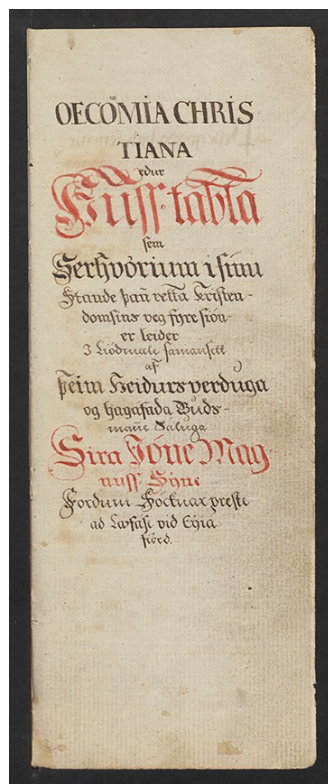 OECÖMIA CHRIS
TIANA
edur
Huss-tabla
sem
Serhvórium i sinu
Stande þañ retta Kristen-
domsins veg fyre sión-
er leider
I Liódmæle samansett
af
þeim Heidursverduga
og hagafada Guds-
mañe Saluga
Sira Jóne Mag
nuss Syne
Fordum Sócknar preste
ad Laufáse vid Eyia
fiörd.